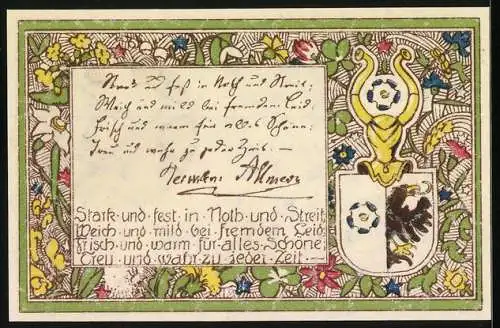 Stark und fest in Noth und Streit;
Weich und mild bei fremdem Leid;
Frisch und warm für alles Schöne;
Treu und wahr zu jeder Zeit. —
Hermann Allmers
Stark · und · fest · in · Noth · und · Streit
Weich · und · mild · bei · fremdem · Leid
Frisch · und · warm · für · alles · Schöne
Treu · und · wahr · zu · jeder · Zeit · —